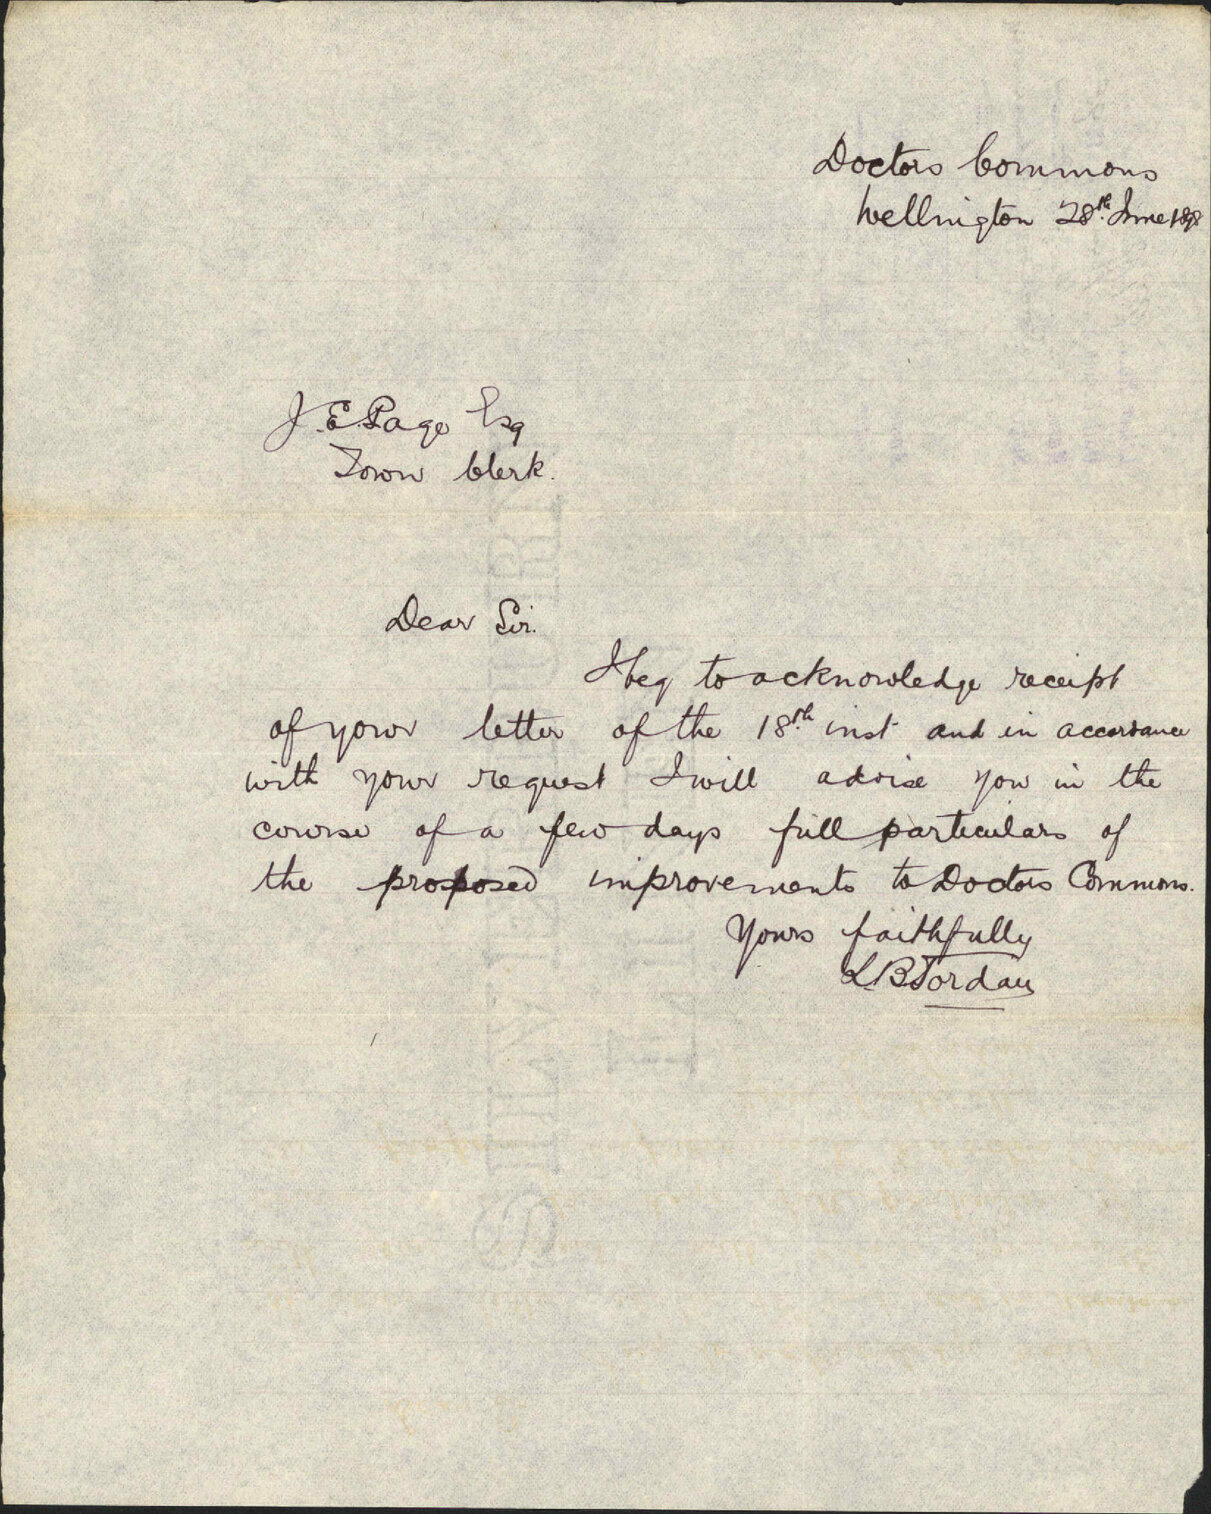 Doctors Commons
Wellington 28th June 1898
J. E. Page Esq
Town Clerk.
Dear Sir.
I beg to acknowledge receipt
of your letter of the 18th inst and in accordance
with your request I will advise you in the
course of a few days full particulars of
the proposed improvements to Doctors Commons.
Yours faithfully
L B Jordan